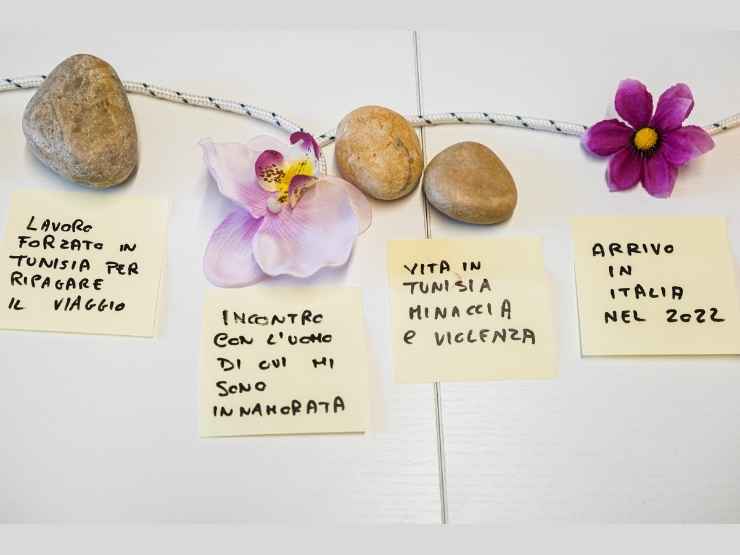 LAVORO
FORZATO IN
TUNISIA PER
RIPAGARE
IL VIAGGIO
INCONTRO
CON L'UOMO
DI CUI MI
SONO
INNAMORATA
VITA IN
TUNISIA
MINACCIA
E VIOLENZA
ARRIVO
IN
ITALIA
NEL 2022